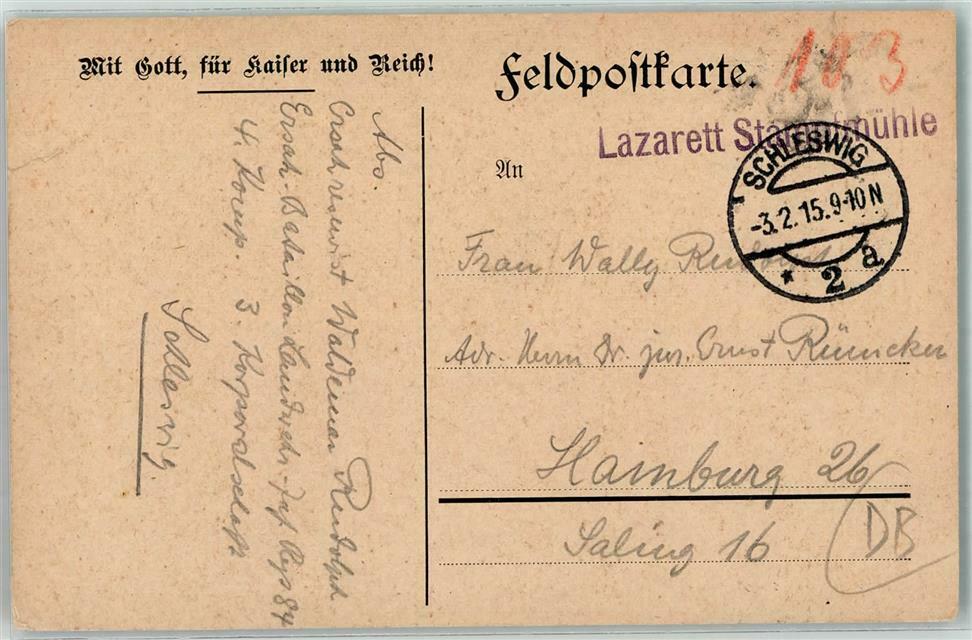 Mit Gott, für Kaiser und Reich!
Feldpostkarte.
103
Lazarett Stampfmühle
SCHLESWIG
-3.2.15.9-10N
* 2 a
An
Frau Wally Rudolph
Adr. Herrn Dr. jur. Ernst Rümcker
Hamburg 26
Saling 16
DB
Abs.
Ersatzreservist Waldemar Rudolph
Ersatz-Bataillon Landwehr-Inf. Regt 84
4. Komp. 3. Korporalschaft
Schleswig